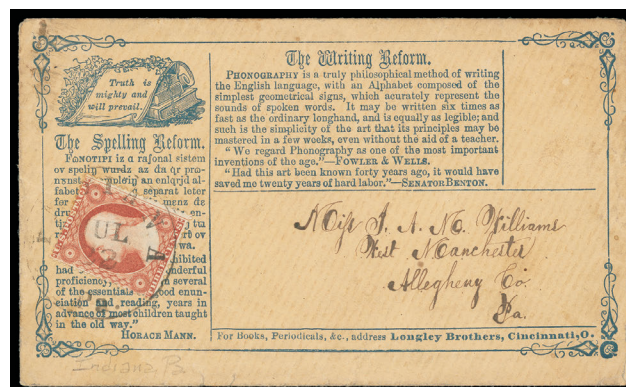 Truth is
mighty and
will prevail.
The Spelling Reform.
FONOTIPI iz a rajonal sistem
ov spelin wurdz az da qr pro-
an enlqrjd al-
fabet
separat leter
for
menz
en-
tu
ov
wa.
hibited
had
nderful
proficiency,
n several
of the essentials
ood enun-
ciation and reading, years in
advance of most children taught
in the old way."
HORACE MANN.
The Writing Reform.
PHONOGRAPHY is a truly philosophical method of writing
the English language, with an Alphabet composed of the
simplest geometrical signs, which acurately represent the
sounds of spoken words. It may be written six times as
fast as the ordinary longhand, and is equally as legible; and
such is the simplicity of the art that its principles may be
mastered in a few weeks, even without the aid of a teacher.
"We regard Phonography as one of the most important
inventions of the age."—FOWLER & WELLS.
"Had this art been known forty years ago, it would have
saved me twenty years of hard labor."—SENATOR BENTON.
UL
Miss Williams
West Manchester
Allegheny Co.
Pa.
For Books, Periodicals, &c., address Longley Brothers, Cincinnati, O.
Indiana, Pa